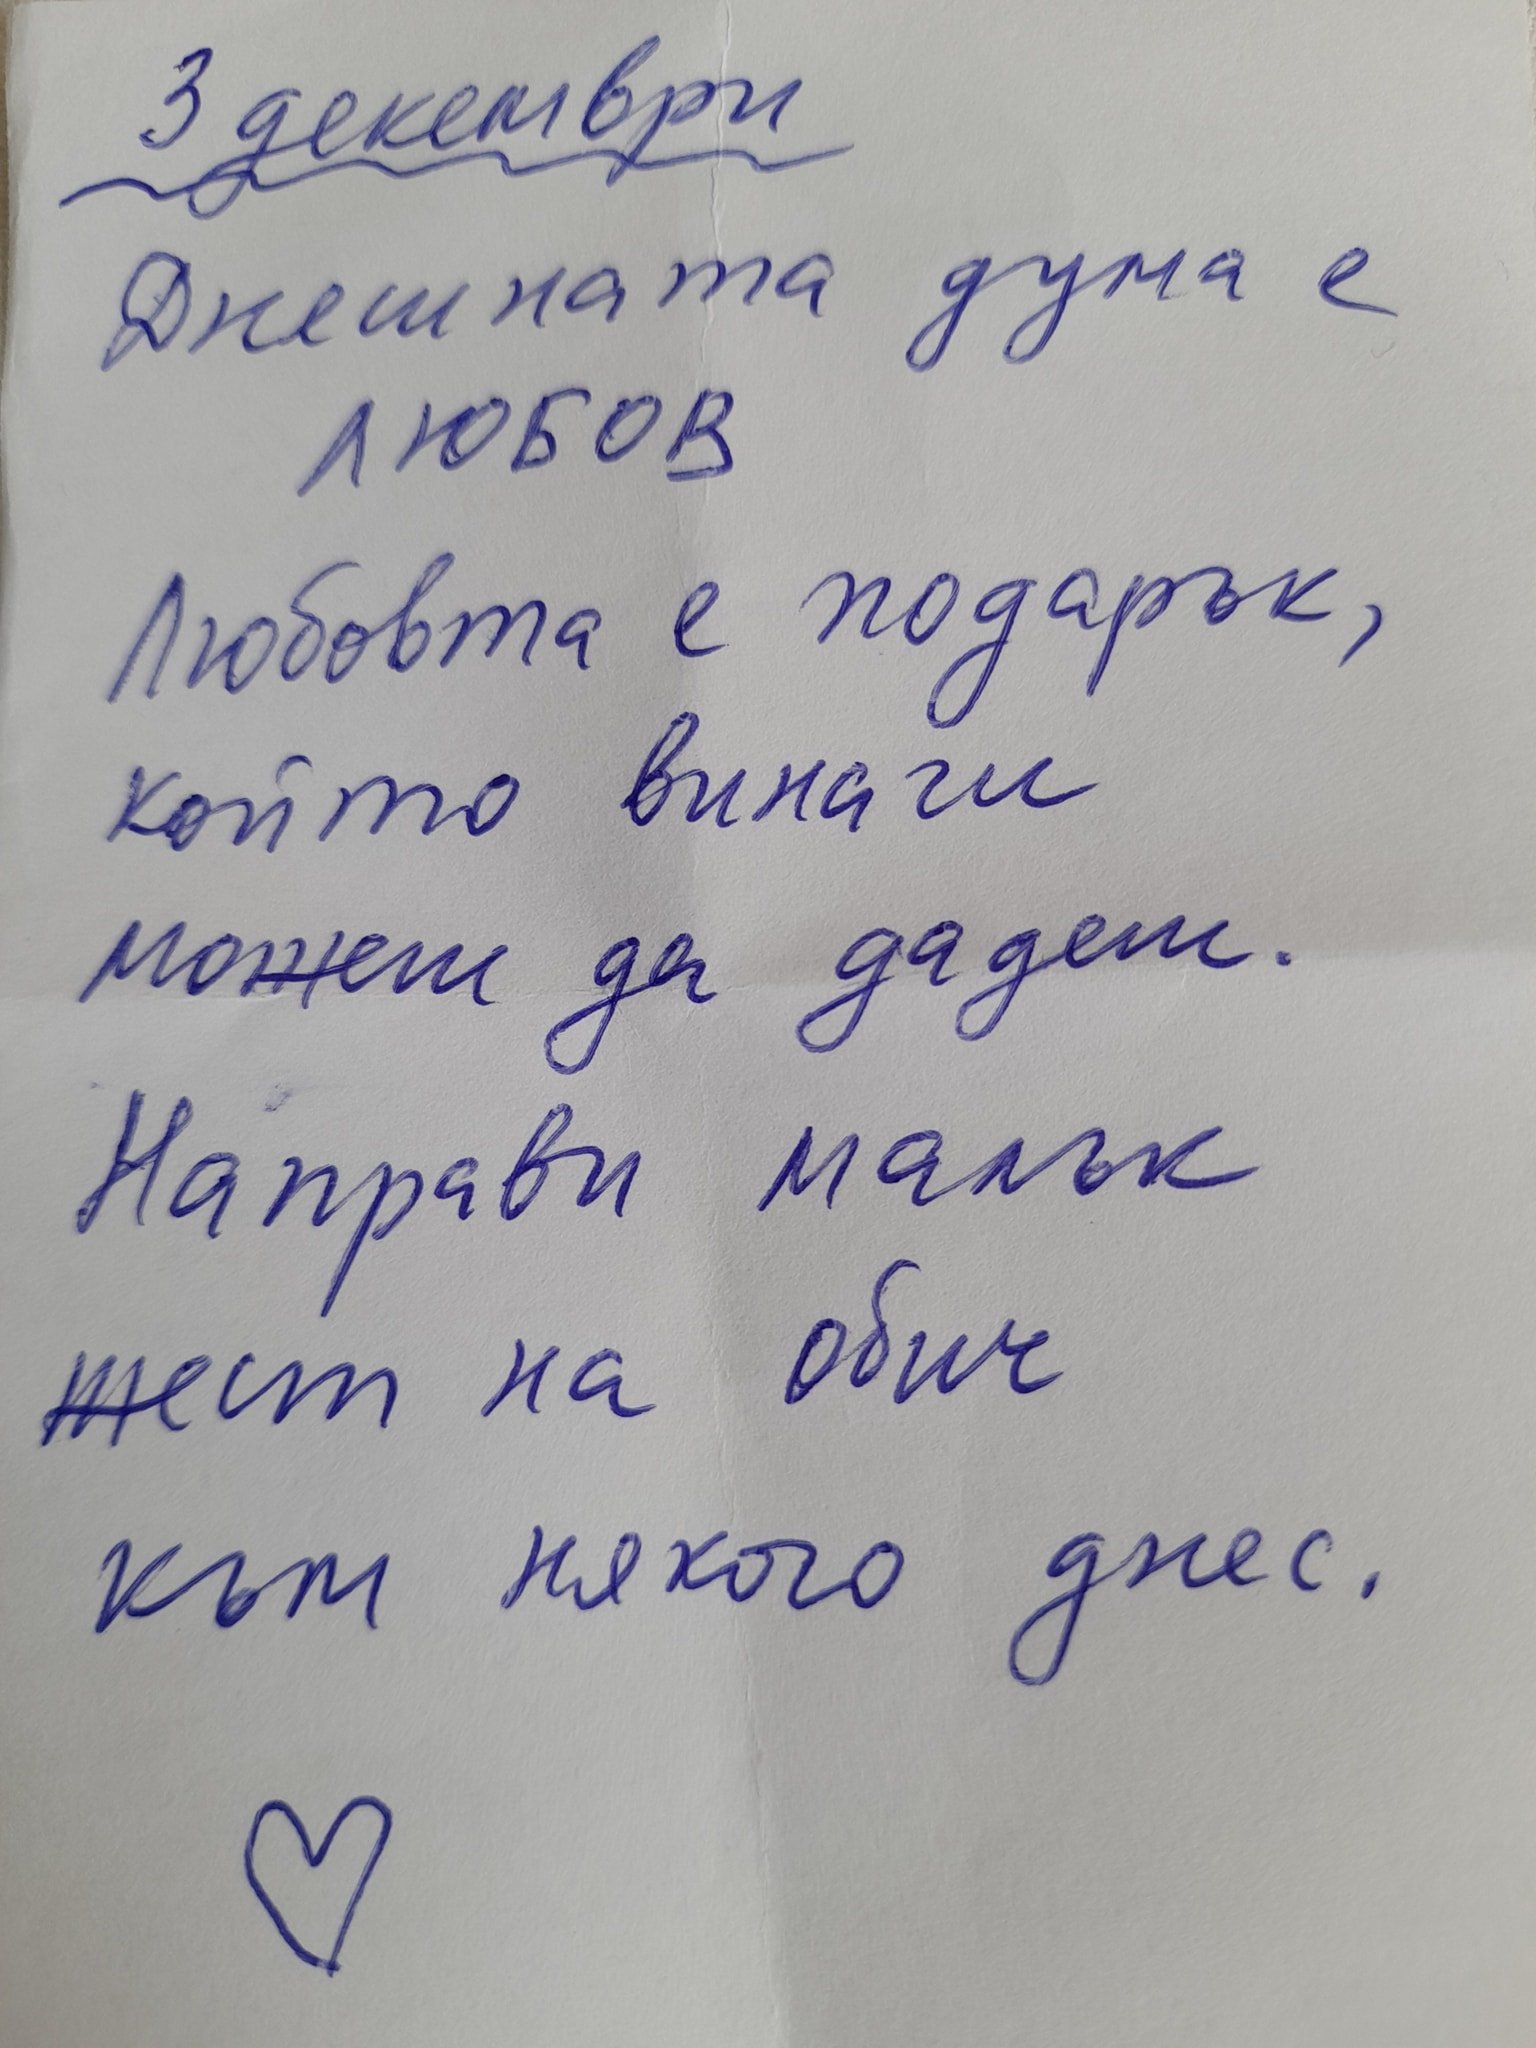 3 декември
Днешната дума е
ЛЮБОВ
Любовта е подарък,
който винаги
можеш да дадеш.
Направи малък
жест на обич
към някого днес.